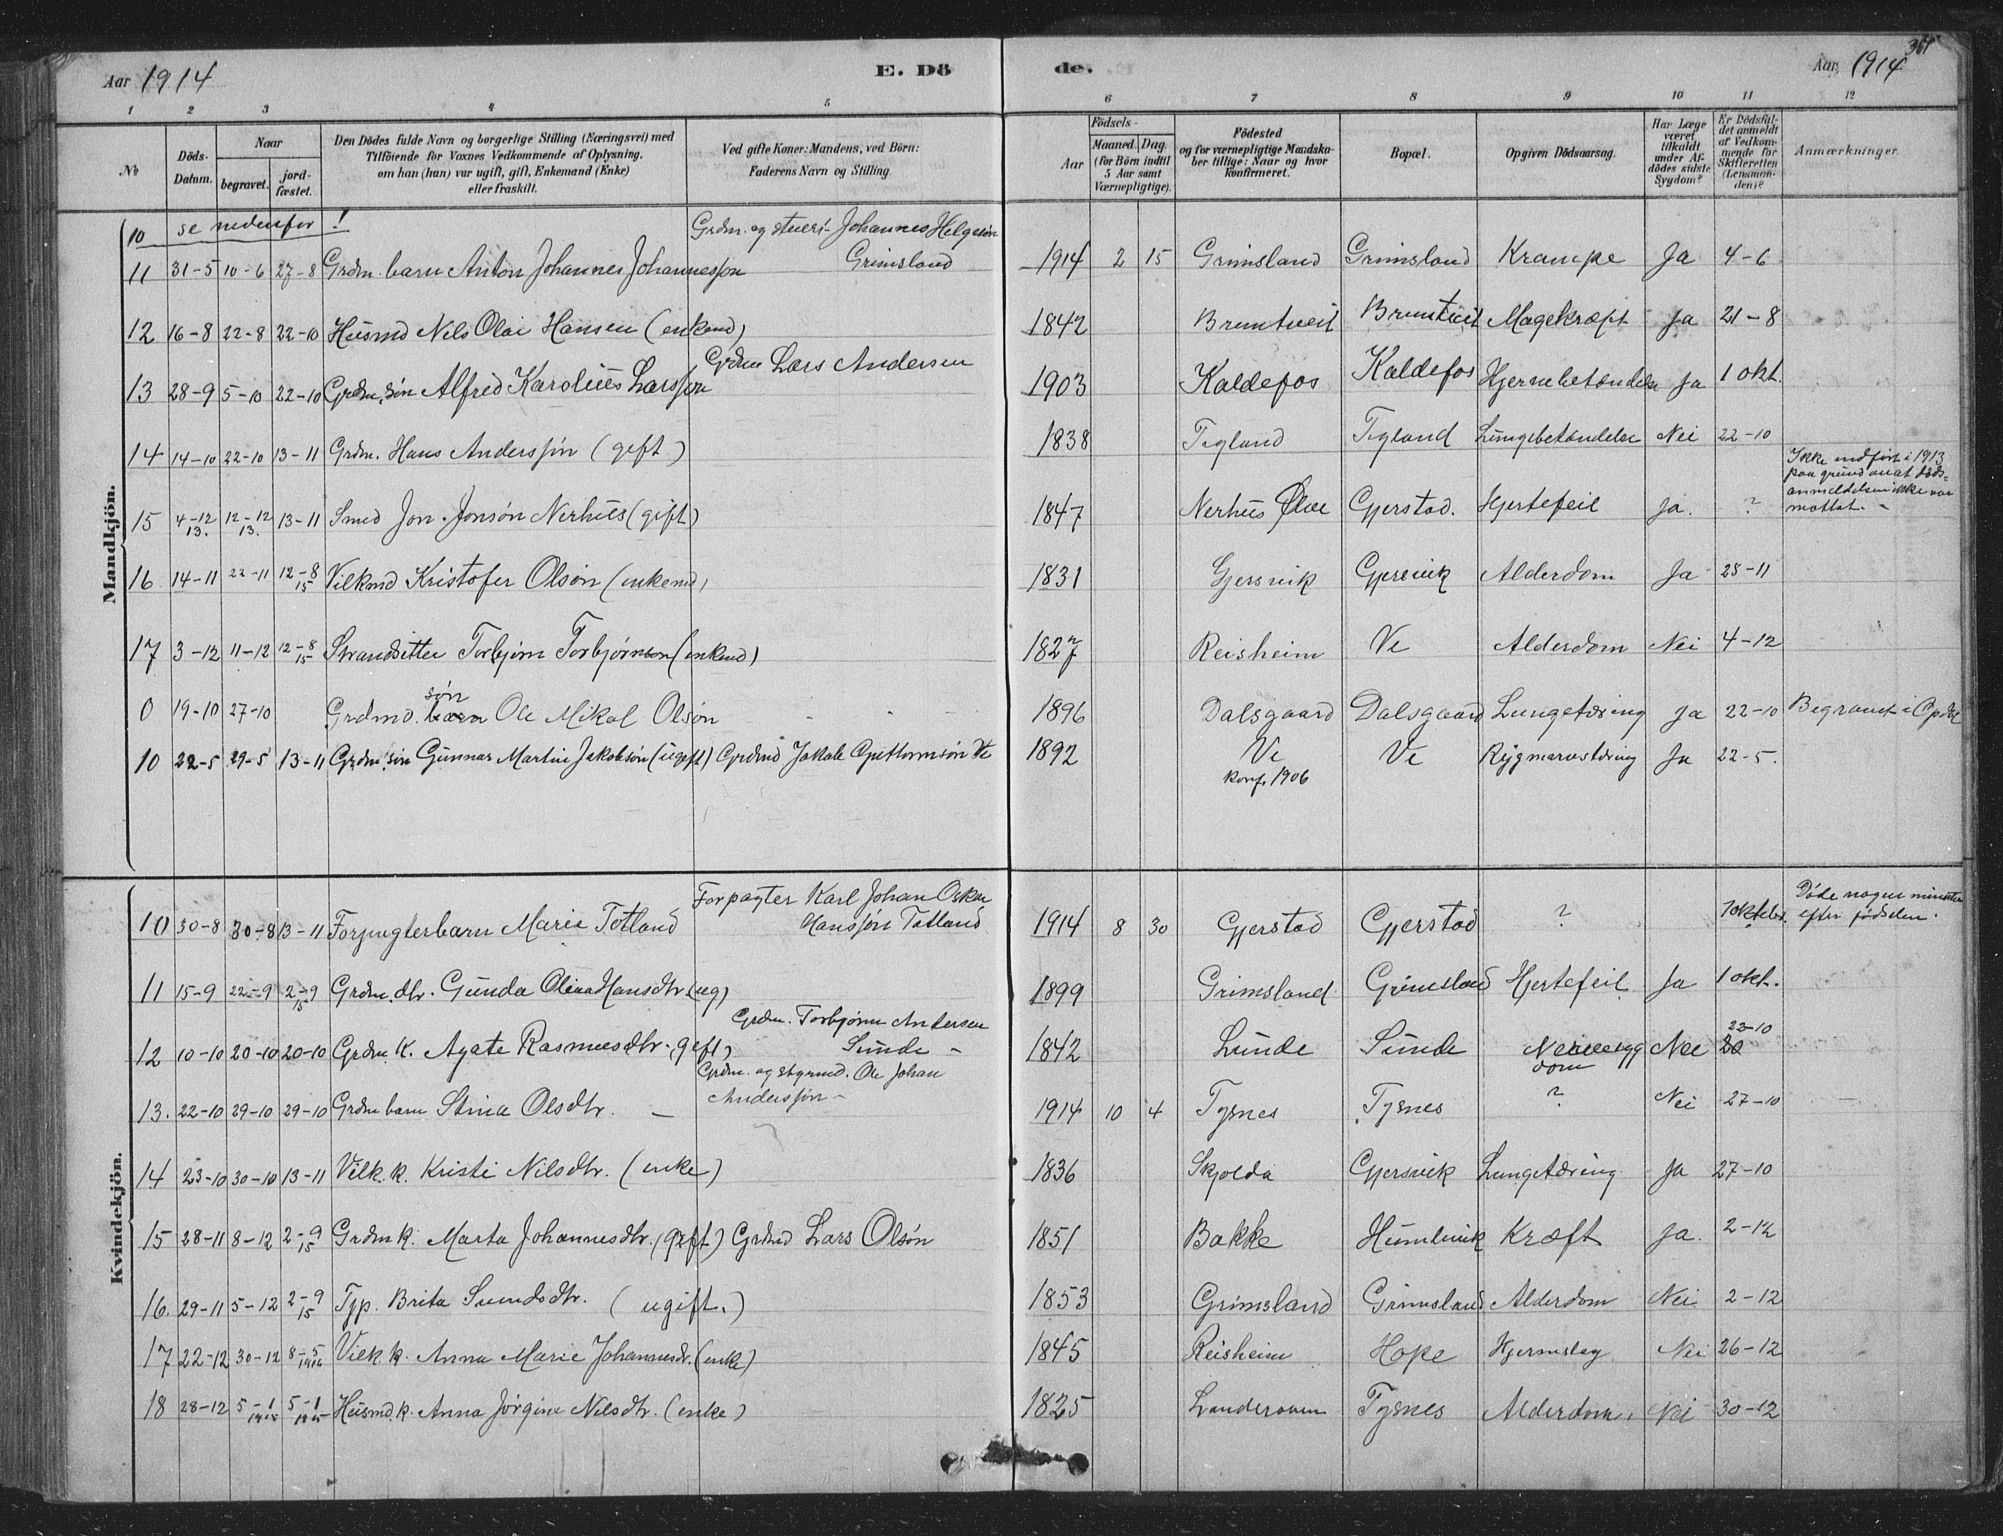 Aar 1914 E. Dö de. Aar 1914
1 2 3 4 5 6 7 8 9 10 11 12
No Döds-Datum. Naar begravet. jord-fæstet. Den Dödes fulde Navn og borgerlige Stilling (Næringsvei) med Tilföiende for Voxnes Vedkommende af Oplysning, om han (hun) var ugift, gift, Enkemand (Enke) eller fraskilt. Ved gifte Koner: Mandens, ved Börn: Faderens Navn og Stilling. Födsels- Aar Maaned. Dag. (for Börn indtil 5 Aar samt Værnepligtige). Födested og for værnepligtige Mandskaber tillige: Naar og hvor konfirmeret. Bopæl. Opgiven Dödsaarsag. Har Læge været tilkaldt under Afdödes sidste Sygdom? Er Dödsfaldet anmeldt af Vedkommende for Skifteretten (Lensmanden)? Anmærkninger.
Mandkjön.
10 se nedenfor! Grdm. og Johannes Helgesøn
11 31-5 10-6 27-8 Grdm. barn Anton Johannes Johannessøn Grimsland 1914 2 15 Grimsland Grimsland Krampe Ja 4-6
12 16-8 22-8 22-10 Husmd Nils Olai Hansen (enkemd) 1842 Bruntveit Bruntveit Mavekræft Ja 21-8
13 28-9 5-10 22-10 Grdm. søn Alfred Karolius Larssøn Grdm Lars Andersen 1903 Kaldefos Kaldefos Hjernebetændelse Ja 1 okt.
14 14-10 22-10 13-11 Grdm. Hans Anderssøn (gift) 1838 Tegland Tegland Lungebetændelse Nei 22-10
15 4-12 13. 12-12 13. 13-11 Smed Jon Jonsøn Nerhus (gift) 1847 Nerhus Ølve Gjerstad. Hjertefeil Ja. ? Ikke indført i 1913 paa grund av at dødsanmeldelsen ikke var mottat. -
16 14-11 22-11 12-8 15 Vilkmd Kristofer Olsøn (enkemd) 1831 Gjersvik Gjersvik Alderdom Ja 25-11
17 3-12 11-12 12-8 15 Strandsitter Torbjørn Torbjørnsøn (enkemd) 1827 Reisheim Ve Alderdom Nei 4-12
0 19-10 27-10 Grdmd. barn søn Ole Mikal Olsøn - - - 1896 Dalsgaard Dalsgaard Lungetæring Ja 22-10 Begravet i Opdal
10 22-5 29-5 13-11 Grdm. søn Gunnar Martin Jakobsøn (ugift) Grdmd Jakob Guttormsøn Ve 1892 Ve konf. 1906 Ve Rygmarvstæring Ja 22-5.
Kvindekjön.
10 30-8 30-8 13-11 Forpagterbarn Marie Totland Forpagter Karl Johan Oskar Hanssøn Totland 1914 8 30 Gjerstad Gjerstad ? 1 oktbr. Døde nogen minutter efter fødselen.
11 15-9 22-9 2-9 15 Grdm. dtr. Gunda Olina Hansdtr (ug) 1899 Grimsland Grimsland Hjertefeil Ja 1 okt.
12 10-10 20-10 20-10 Grdm k. Agate Rasmusdtr. (gift) Grdm. Torbjørn Andersen Sunde - 1842 Lunde Sunde Nei 22-10
13. 22-10 29-10 29-10 Grdm barn Stina Olsdtr. - Grdm. og styrmd. Ole Johan Anderssøn - 1914 10 4 Tysnes Tysnes ? Nei 27-10 -
14 23-10 30-10 13-11 Vilk. k. Kristi Nilsdtr. (enke) 1836 Skjolda Gjersvik Lungetæring Ja 27-10
15 28-11 8-12 2-9 15 Grdm k. Marta Johannesdtr. (gift) Grdmd Lars Olsøn 1851 Bakke Humlevik Kræft Ja. 2-12
16. 29-11 5-12 2-9 15 Tjp. Brita Sjursdtr. (ugift.) 1853 Grimsland Grimsland Alderdom Nei 2-12
17 22-12 30-12 8-5 1916 Vilk. k. Anna Marie Johannesdr. (enke) 1845 Reisheim Hope Hjerneslag Nei 26-12
18 28-12 5-1 1915 5-1 1915 Husmd. k. Anna Jørgine Nilsdtr. (enke) 1825 Tysnes Alderdom Nei 30-12